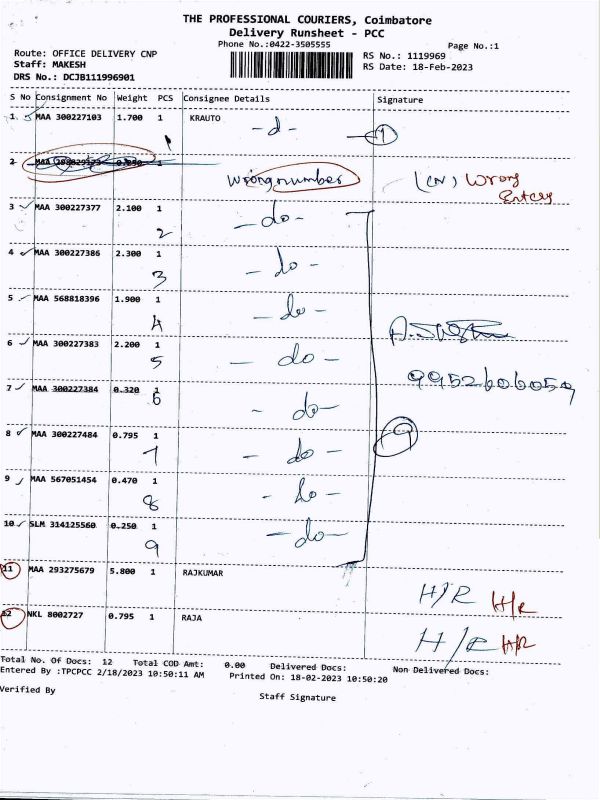 THE PROFESSIONAL COURIERS, Coimbatore
Delivery Runsheet - PCC
Phone No.:0422-3505555
Page No.:1
Route: OFFICE DELIVERY CNP
RS No.: 1119969
Staff: MAKESH
RS Date: 18-Feb-2023
DRS No.: DCJB111996901
S No Consignment No Weight PCS Consignee Details Signature
1 MAA 300227103 1.700 1 KRAUTO
-d-
1
2
wrong number
(CN) Wrong
Entry
3 MAA 300227377 2.100 1
2 -do-
4 MAA 300227386 2.300 1
3 -do-
5 MAA 568818396 1.900 1
4 -do-
6 MAA 300227383 2.200 1
5 -do-
9952606059
7 MAA 300227384 0.320 1
6 -do-
8 MAA 300227484 0.795 1
7 -do-
9
9 MAA 567051454 0.470 1
8 -do-
10 SLM 314125560 0.250 1
9 -do-
11 MAA 293275679 5.800 1 RAJKUMAR
H/R H/R
12 NKL 8002727 0.795 1 RAJA
H/R H/R
Total No. Of Docs: 12 Total COD Amt: 0.00 Delivered Docs: Non Delivered Docs:
Entered By :TPCPCC 2/18/2023 10:50:11 AM Printed On: 18-02-2023 10:50:20
Verified By
Staff Signature